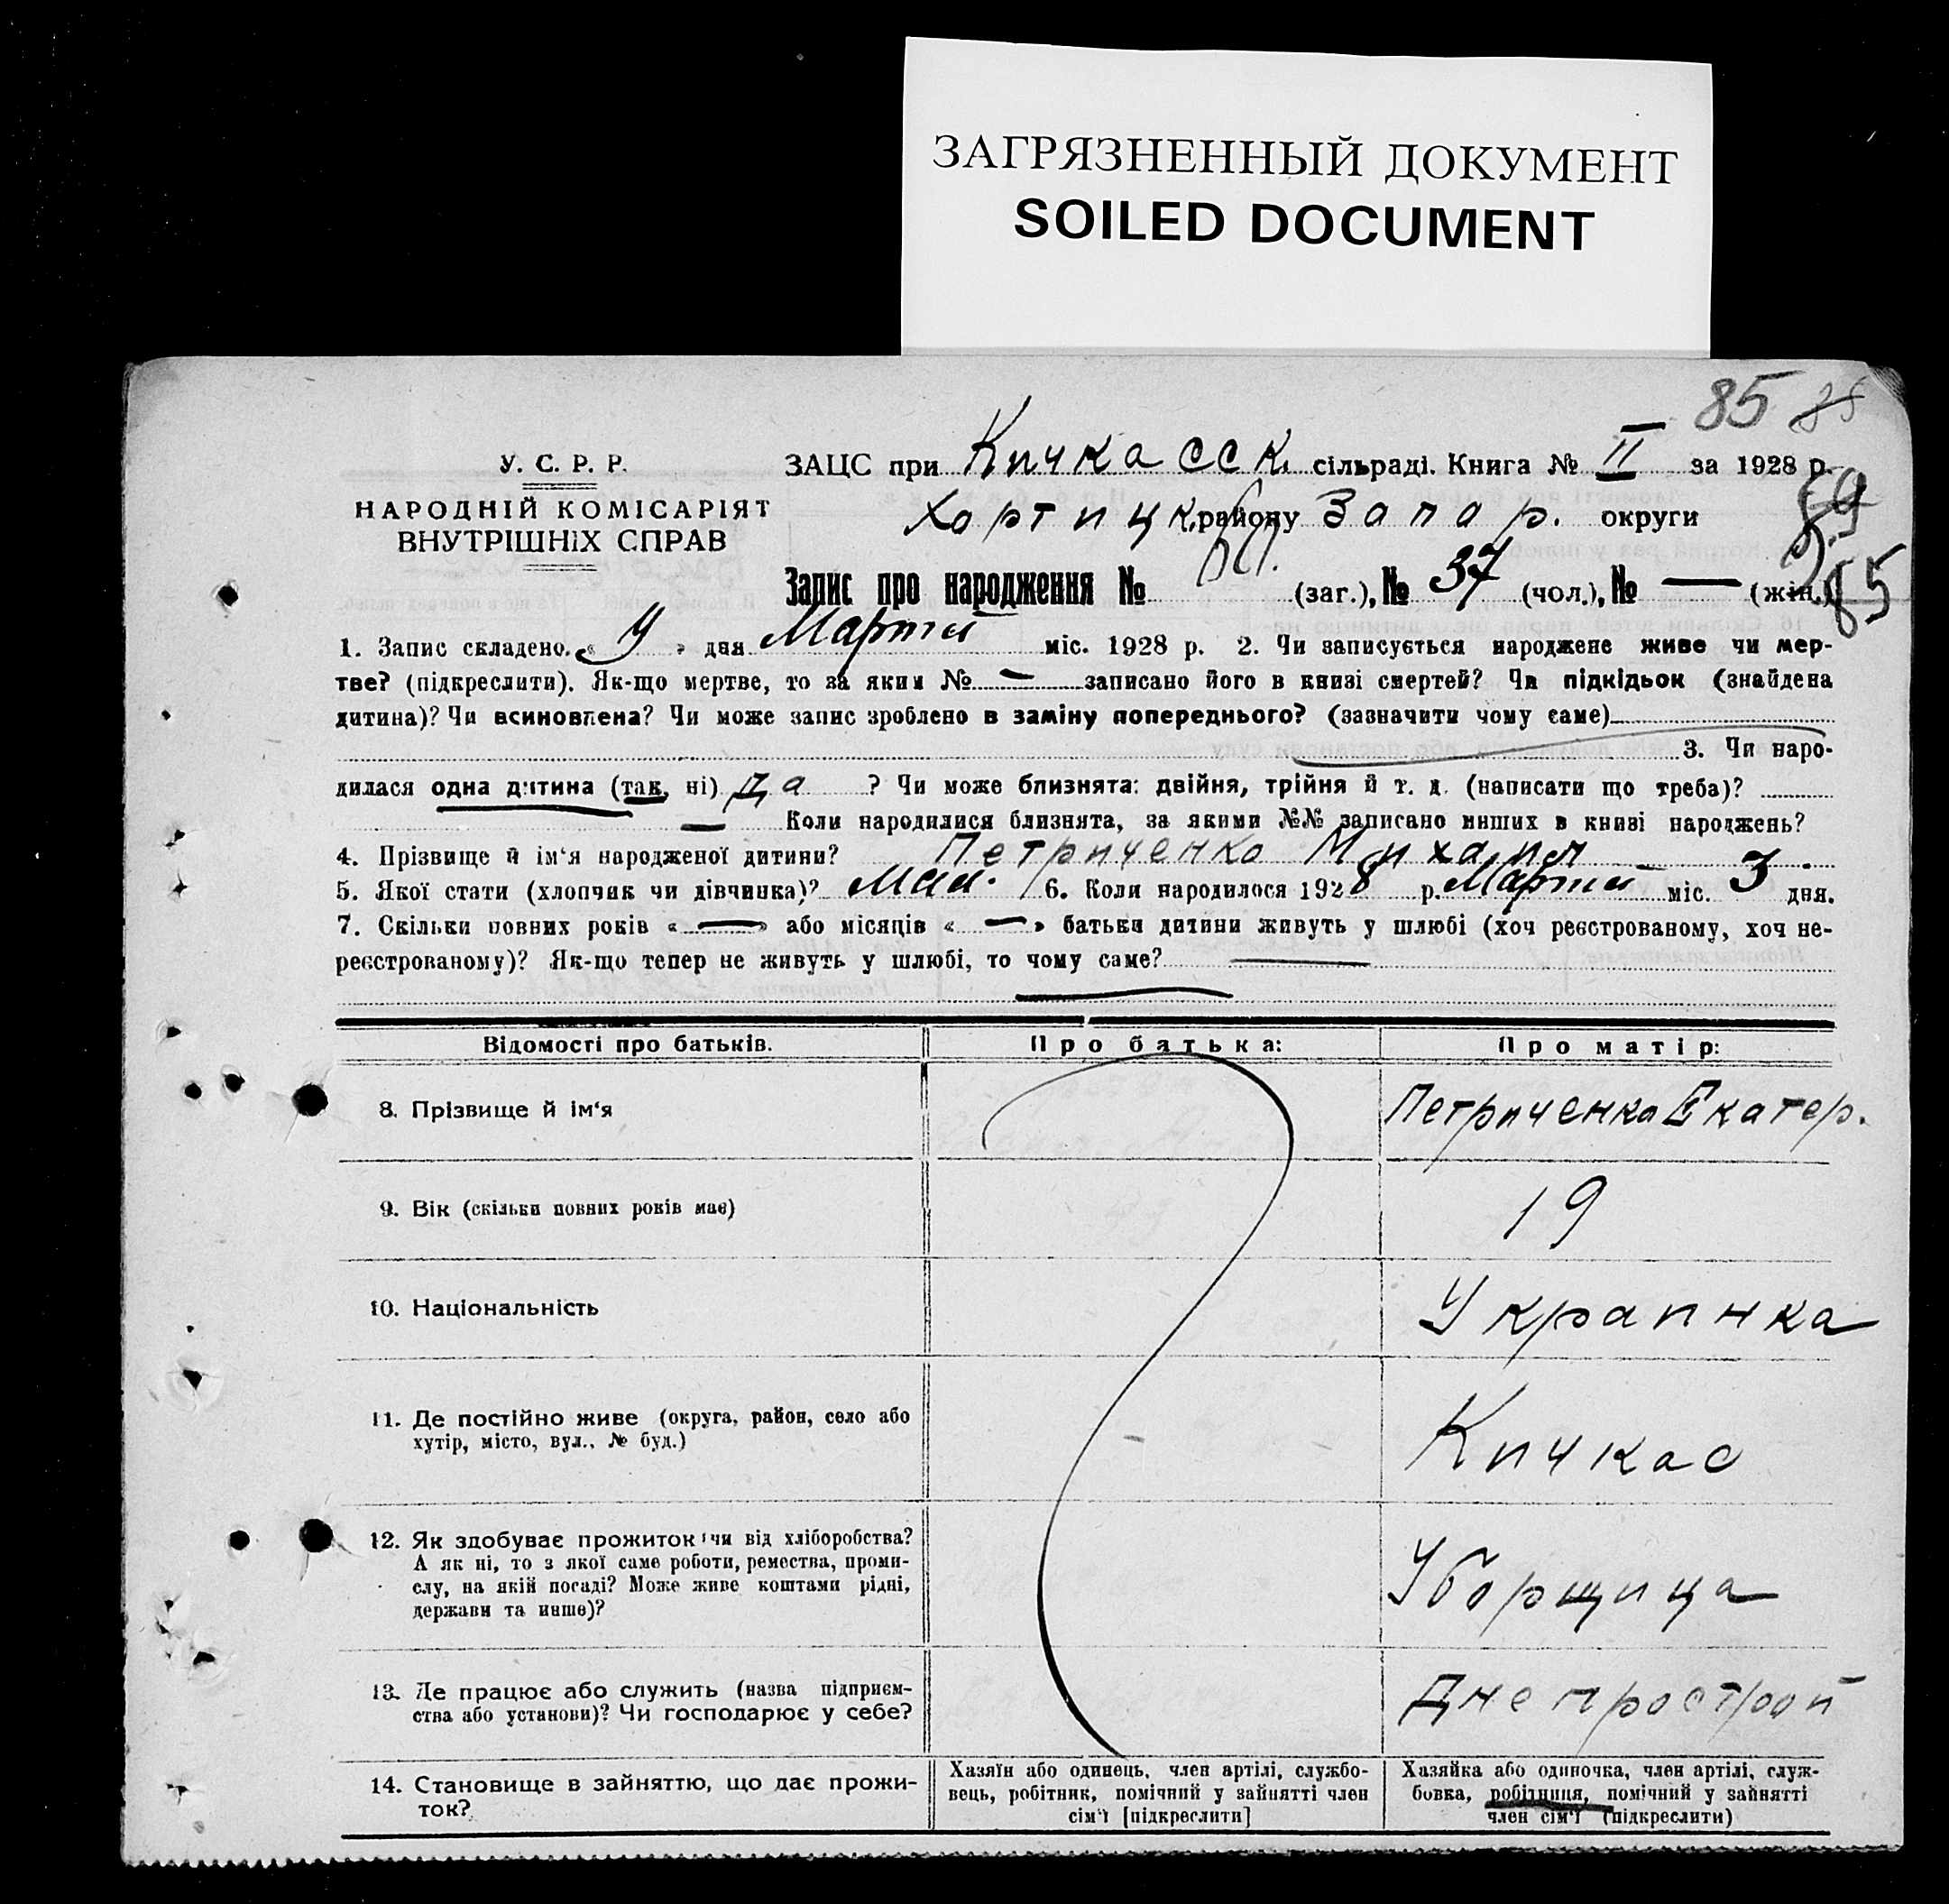 ЗАГРЯЗНЕННЫЙ ДОКУМЕНТ
SOILED DOCUMENT
85
У. С. Р. Р.
НАРОДНІЙ КОМІСАРІЯТ
ВНУТРІШНІХ СПРАВ
ЗАЦС при Кичкасск. сільраді. Книга № II за 1928 р.
Хортицк. району Запор. округи
Запис про народження № (заг.), № 37 (чол.), № — (жін.)
85
1. Запис складено « » дня Марта міс. 1928 р. 2. Чи записується народжене живе чи мер-
тве? (підкреслити). Як-що мертве, то за яким № — записано його в книзі смертей? Чи підкідьок (знайдена
дитина)? Чи всиновлена? Чи може запис зроблено в заміну попереднього? (зазначити чому саме)
3. Чи наро-
дилася одна дитина (так, ні) да ? Чи може близнята: двійня, трійня й т. д. (написати що треба)?
— Коли народилися близнята, за якими №№ записано инших в книзі народжень?
4. Прізвище й ім‘я народженої дитини? Петриченко Михаил
5. Якої стати (хлопчик чи дівчинка)? Мал. 6. Коли народилося 1928 р. Марта міс. 3 дня.
7. Скільки повних років « — » або місяців « — » батьки дитини живуть у шлюбі (хоч реєстрованому, хоч не-
реєстрованому)? Як-що тепер не живуть у шлюбі, то чому саме? —
Відомості про батьків. Про батька: Про матір:
8. Прізвище й ім‘я Петриченко Екатер.
9. Вік (скільки повних років має) 19
10. Національність Украинка
11. Де постійно живе (округа, район, село або
хутір, місто, вул., № буд.) Кичкас
12. Як здобуває прожиток чи від хліборобства?
А як ні, то з якої саме роботи, ремества, проми-
слу, на якій посаді? Може живе коштами рідні,
держави та инше)? Уборщица
13. Де працює або служить (назва підприєм-
ства або установи)? Чи господарює у себе? Днепрострой
14. Становище в зайняттю, що дає прожи-
ток?
Хазяїн або одинець, член артілі, службо-
вець, робітник, помічний у зайнятті член
сім‘ї [підкреслити]
Хазяйка або одиночка, член артілі, служ-
бовка, робітниця, помічний у зайнятті
член сім‘ї (підкреслити)